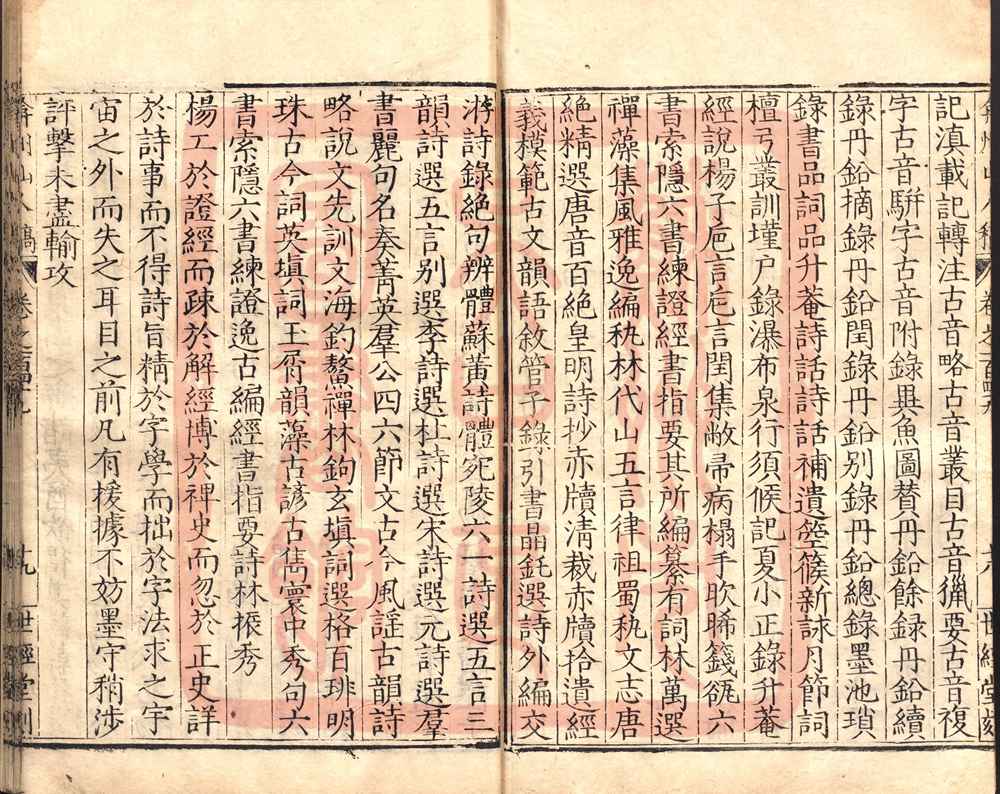 記滇載記轉注古音略古音叢目古音獵要古音複
字古音駢字古音附錄異魚圖贊丹鉛餘錄丹鉛續
錄丹鉛摘錄丹鉛閏錄丹鉛别錄丹鉛總錄墨池瑣
錄書品詞品升菴詩話詩話補遺箜篌新詠月節詞
檀弓叢訓墐户錄瀑布泉行須候記夏小正錄升菴
經說楊子巵言巵言閏集敝帚病榻手欥晞籛瓻六
書索隱六書練證經書指要其所編纂有詞林萬選
禪藻集風雅逸編秇林代山五言律祖蜀秇文志唐
絶精選唐音百絶皇明詩抄赤牘清裁赤牘拾遺經
義模範古文韻語敘管子錄引書晶鈺選詩外編交
游詩錄絶句辨體蘇黃詩體宛陵六一詩選五言三
韻詩選五言别選李詩選杜詩選宋詩選元詩選羣
書麗句名奏菁英羣公四六節文古今風謡古韻詩
略說文先訓文海釣鰲禪林鉤玄塡詞選格百琲明
珠古今詞英塡詞玉屑韻藻古諺古雋寰中秀句六
書索隱六書練證逸古編經書指要詩林振秀
楊工於證經而疎於解經博於稗史而忽於正史詳
於詩事而不得詩旨精於字學而拙於字法求之宇
宙之外而失之耳目之前凡有援據不妨墨守稍涉
評擊未盡輸攻